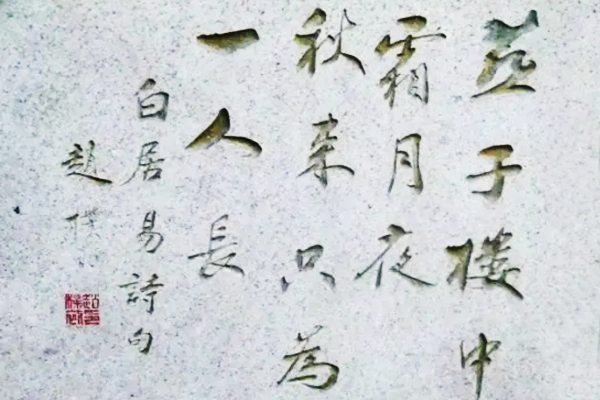 燕子楼中
霜月夜
秋来只為
一人長
白居易詩句
赵樸初